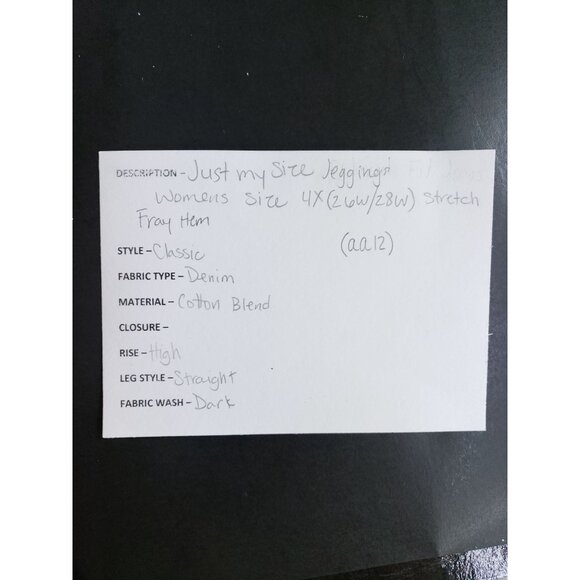 DESCRIPTION – Just my Size Jeggings
Womens Size 4X (26W/28W) Stretch
Fray Hem
(aa12)
STYLE – Classic
FABRIC TYPE – Denim
MATERIAL – Cotton Blend
CLOSURE –
RISE – High
LEG STYLE – Straight
FABRIC WASH – Dark